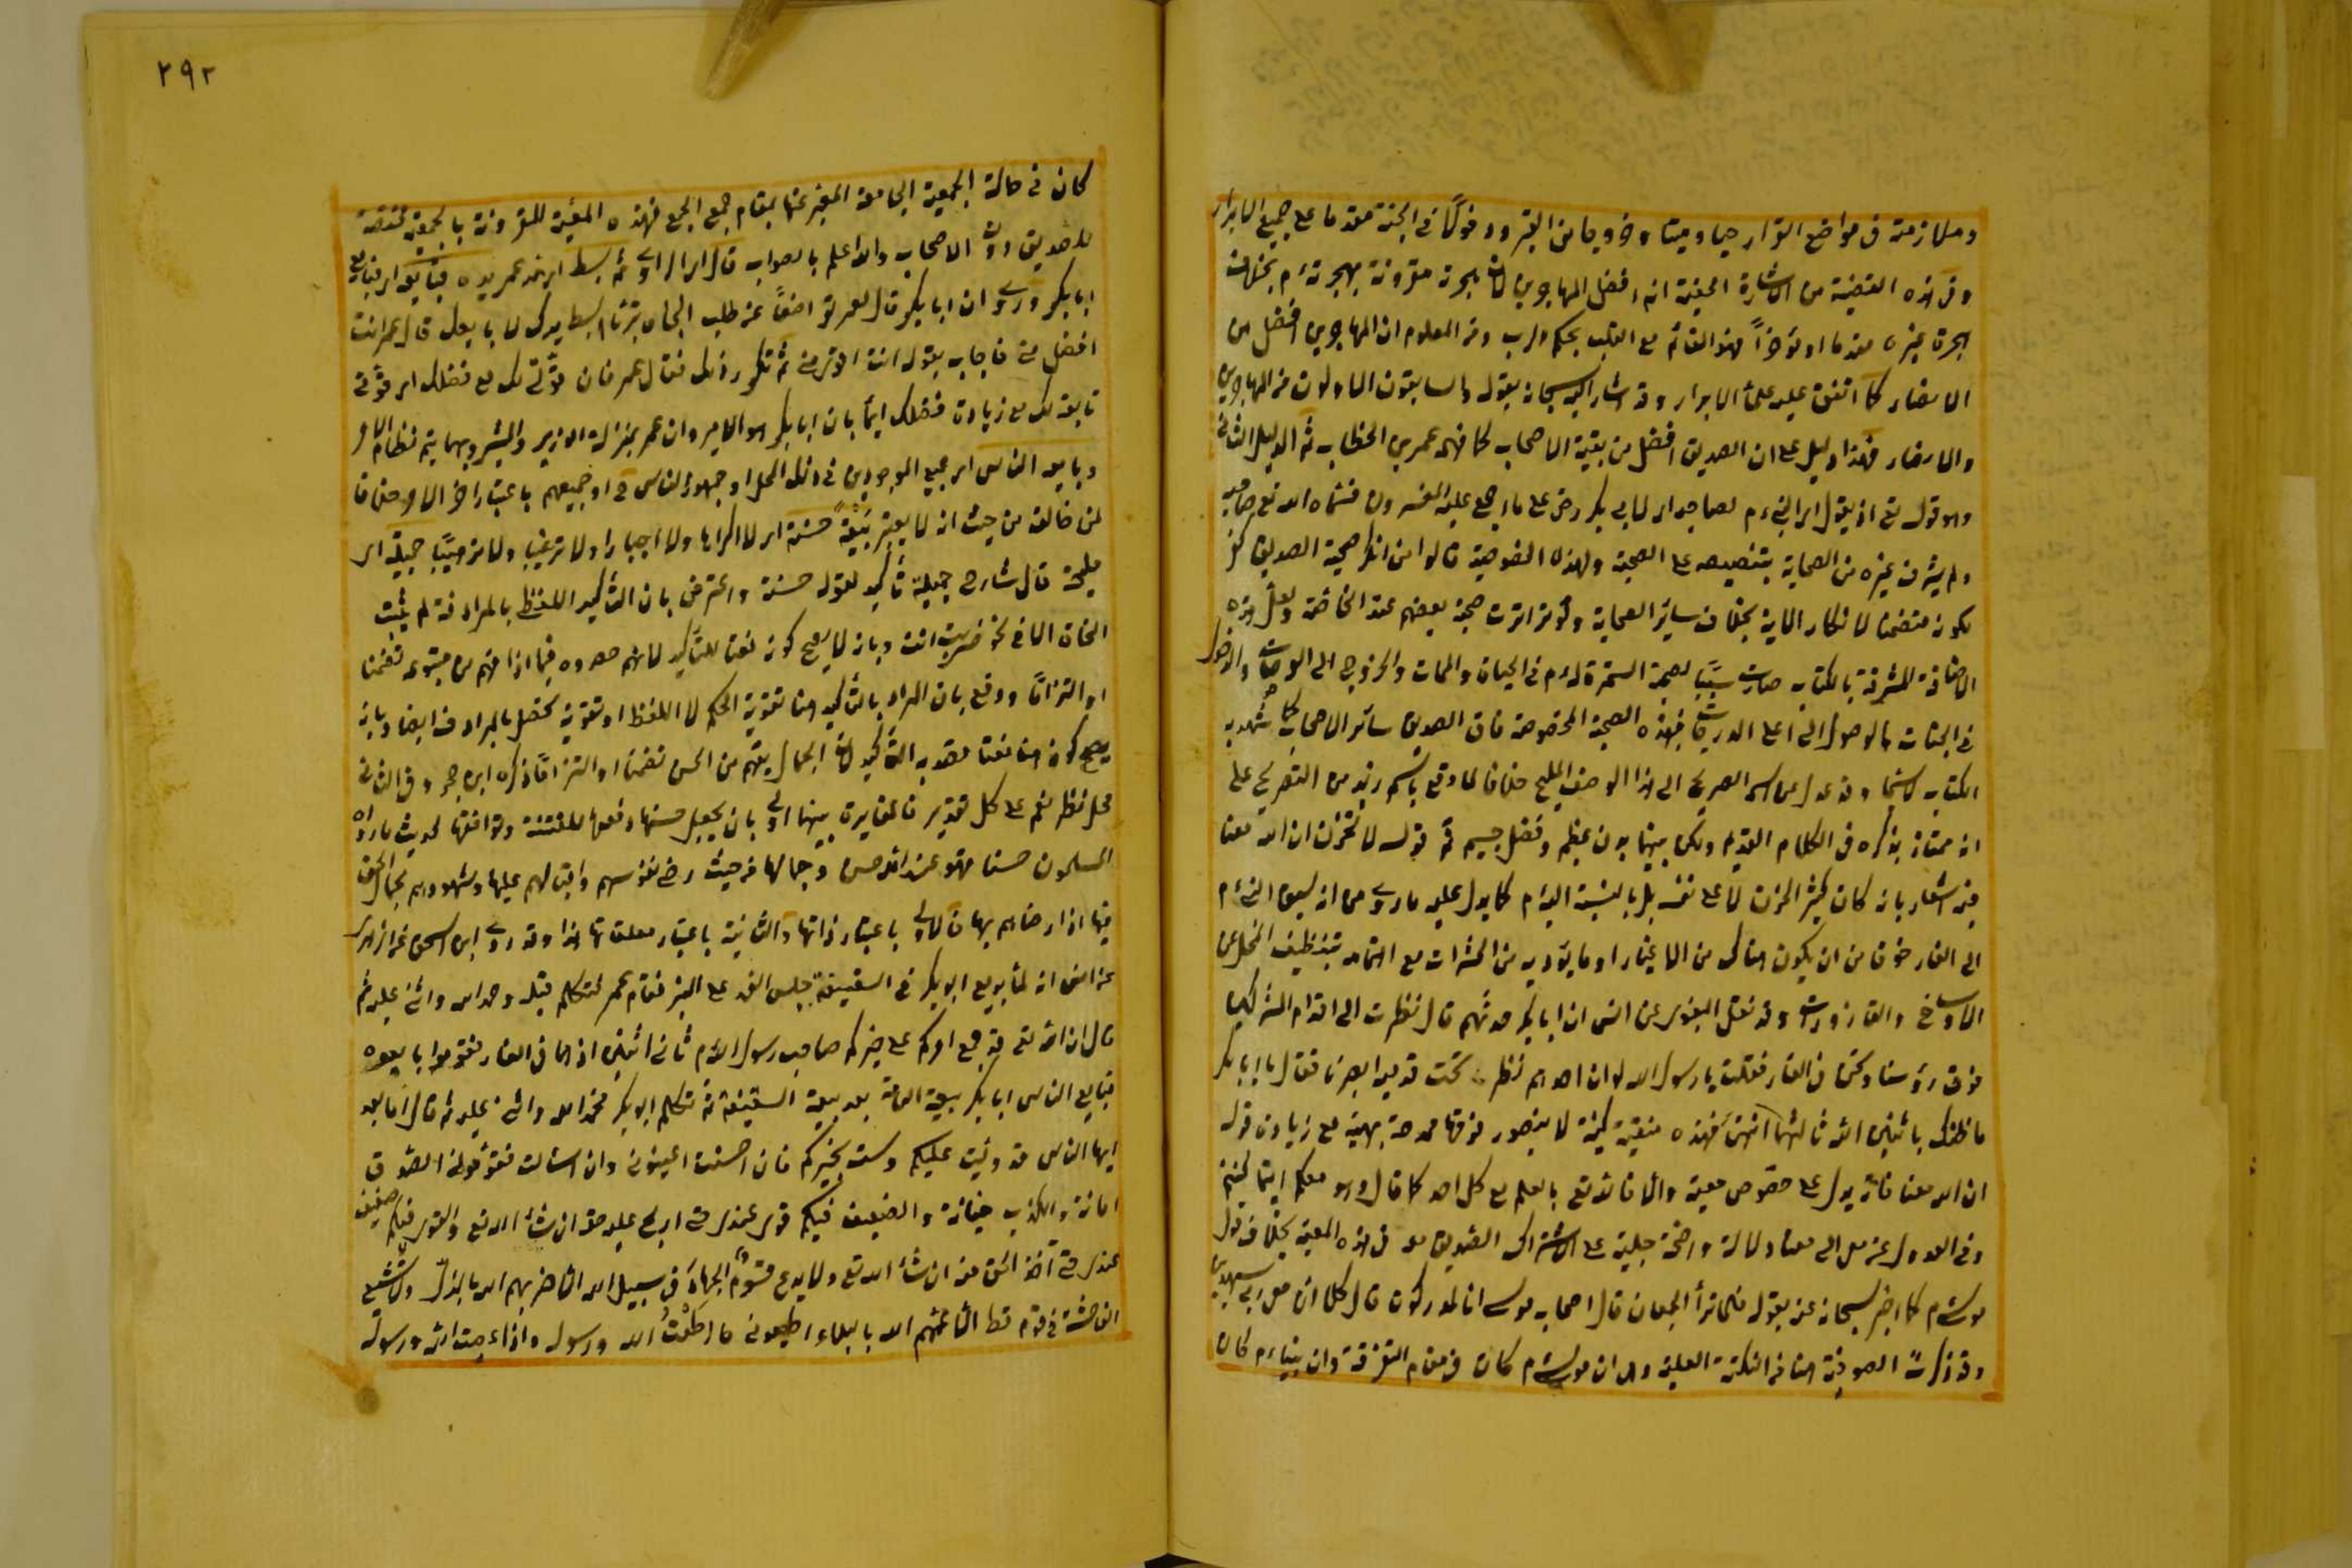 وملازمته فى مواضع القرار حيا وميتا وخروجا من القبر ودخولًا فى الجنة مقدما على جميع الابرار
وفى هذه القضية من الاشارة الخفية انه افضل المهاجرين لان هجرته مقرونة بهجرته م بخلاف
هجرة غيره مقدما او مؤخرًا فهو القائم مع القلب بحكم الرب ومن المعلوم ان المهاجرين افضل من
الانصار كما اتفق عليه علماء الابرار وقد اشار اليه سبحانه بقوله والسابقون الاولون من المهاجرين
والانصار فهذا دليل على ان الصديق افضل من بقية الاصحاب كما فهمه عمر بن الخطاب ثم الدليل الثانى
وهو قوله تع اذ يقول اى النبى م لصاحبه اى لابى بكر رض على ما اجمع عليه المفسرون فسماه الله تع صاحبه
ولم يشرف غيره من الصحابة بتنصيصه على الصحبة ولهذه الخصوصية قالوا من انكر صحبة الصديق كفر
لكونه متضمنا لانكار الاية بخلاف ساير الصحابة ولو تواترت صحبة بعضهم عند الخاصة ولعل هذه
الاضافة المشرفة بالكتاب صارت سببًا لصحبة المستمرة له م فى الحياة والممات والخروج الى العرصات والدخول
فى الجنات والوصول الى اعلى الدرجات فبهذه الصحبة المخصوصة فاق الصديق سائر الاصحاب كما شهد به
الكتاب لاسيما وقد عدل من اسمه الصريح الى هذا الوصف المليح خلافا لما وقع باسم زيد من التصريح على
انه ممتاز بذكره فى الكلام القديم ولكن بينهما بون عظيم وفضل جسيم ثم قوله لا تحزن ان الله معنا
فيه اشعار بانه كان كثير الحزن لا على نفسه بل بالنسبة اليه م كما يدل عليه ما روى من انه سبق النبى م
الى الغار خوفا من ان يكون هناك من الاغيار او ما يؤذيه من الحشرات مع اهتمامه بتنظيف المحل عن
الاوساخ والقاذورات وقد نقل البغوى عن انس ان ابا بكر حدثهم قال نظرت الى اقدام المشركين
فوق رؤسنا ونحن فى الغار فقلت يا رسول الله لو ان احدهم نظر تحت قدميه ابصرنا فقال يا ابا بكر
ما ظنك باثنين الله ثالثهما انتهى فهذه منقبة لا يتصور فوقها مدحة بهية مع زيادة قوله
ان الله معنا فانه يدل على خصوص معية والا فالله تع بالعلم مع كل احد كما قال وهو معكم اينما كنتم
وفى العدول عن معى الى معنا دلالة واضحة جلية على اشتراك الصديق معه فى هذه المعية بخلاف قول
موسى م كما اخبر سبحانه عنه بقوله فلما تراء الجمعان قال اصحاب موسى انا لمدركون قال كلا ان معى ربى سيهدين
وقد ذكرت الصوفية هنا من النكتة العلية وهى ان موسى م كان فى مقام التفرقة وان نبينا م كان
٢٩٢
كان فى حالة الجمعية الجامعة المعبر عنها بمقام جمع الجمع فهذه المعية المقرونة بالجمعية مختصة
للصديق دون الاصحاب والله اعلم بالصواب قال اى الراوى ثم بسط اى مد عمر يده فبايعه اى فبايع
ابا بكر وروى ان ابا بكر قال لعمر تواضعًا عن طلب الجاه ابسط يدك لابايعك قال عمر انت
افضل منى فاجابه بقوله انت اقوى منى ثم تكرر ذلك فقال عمر فان قوتى لك مع فضلك اى قوتى
تابعة لك مع زيادة فضلك ايماء بان ابا بكر هو الامير وان عمر بمنزلة الوزير والمشير وبهما يتم نظام الامر
وبايعه الناس اى جميع الموجودين فى ذلك المحل او جمهور الناس او جميعهم باعتبار اخر الامر خلافا
لمن خالف من حيث انه لا يعتبر بَيْعَةً حسنة اى لا اكراها ولا اجبارا ولا ترغيبا ولا ترهيبًا جميلة اى
مليحة قال شارح جميلة تأكيد لقوله حسنة واعترض بان التأكيد اللفظى بالمرادف لم يثبت
الا فى نحو ضربت انت وبانه لا يصح كونه نعتا للتأكيد لانهم حدوه فيما اذا فهم من متبوعه تضمنا
او التزامًا ودفع بان المراد بالتأكيد هنا تقوية الحكم لا اللفظ او تقوية تحصل بالمرادف ايضا وبانه
يصح كونه هنا نعتا قصد به التأكيد لان الجمال يفهم من الحسن تضمنا او التزامًا ذكره ابن حجر وفى الثانى
محل نظر نعم على كل تقدير فالمغايرة بينهما اولى بان يجعل حسنها دفعها للفتنة وتوافقها لحديث ما رآه
المسلمون حسنا فهو عند الله حسن وجمالها من حيث رضى نفوسهم واقبالهم عليها وشهودهم بجمال الحق
فيها اذ ارضاهم بها فالاولى باعتبار ذاتها والثانية باعتبار متعلقاتها هذا وقد روى ابن اسحق عن الزهرى
عن انس انه لما بويع ابو بكر فى السقيفة جلس الغد على المنبر فقام عمر فتكلم قبله وحمد الله واثنى عليه ثم
قال ان الله تع قد جمع امركم على خيركم صاحب رسول الله م ثانى اثنين اذ هما فى الغار فقوموا بايعوه
فبايع الناس ابا بكر بيعة العامة بعد بيعة السقيفة ثم تكلم ابو بكر فحمد الله واثنى عليه ثم قال اما بعد
ايها الناس قد وليت عليكم ولست بخيركم فان احسنت اعينونى وان اسات فقومونى الصدق
امانة والكذب خيانة والضعيف فيكم قوى عندى حتى اريح عليه حقه ان شاء الله تع والقوى فيكم ضعيف
عندى حتى آخذ الحق منه ان شاء الله تع ولا يدع قومٌ الجهاد فى سبيل الله الا ضربهم الله بالذل ولا تشيع
الفاحشة فى قوم قط الا عمّهم الله بالبلاء اطيعونى ما اطعتُ الله ورسوله واذا عصيت الله ورسوله